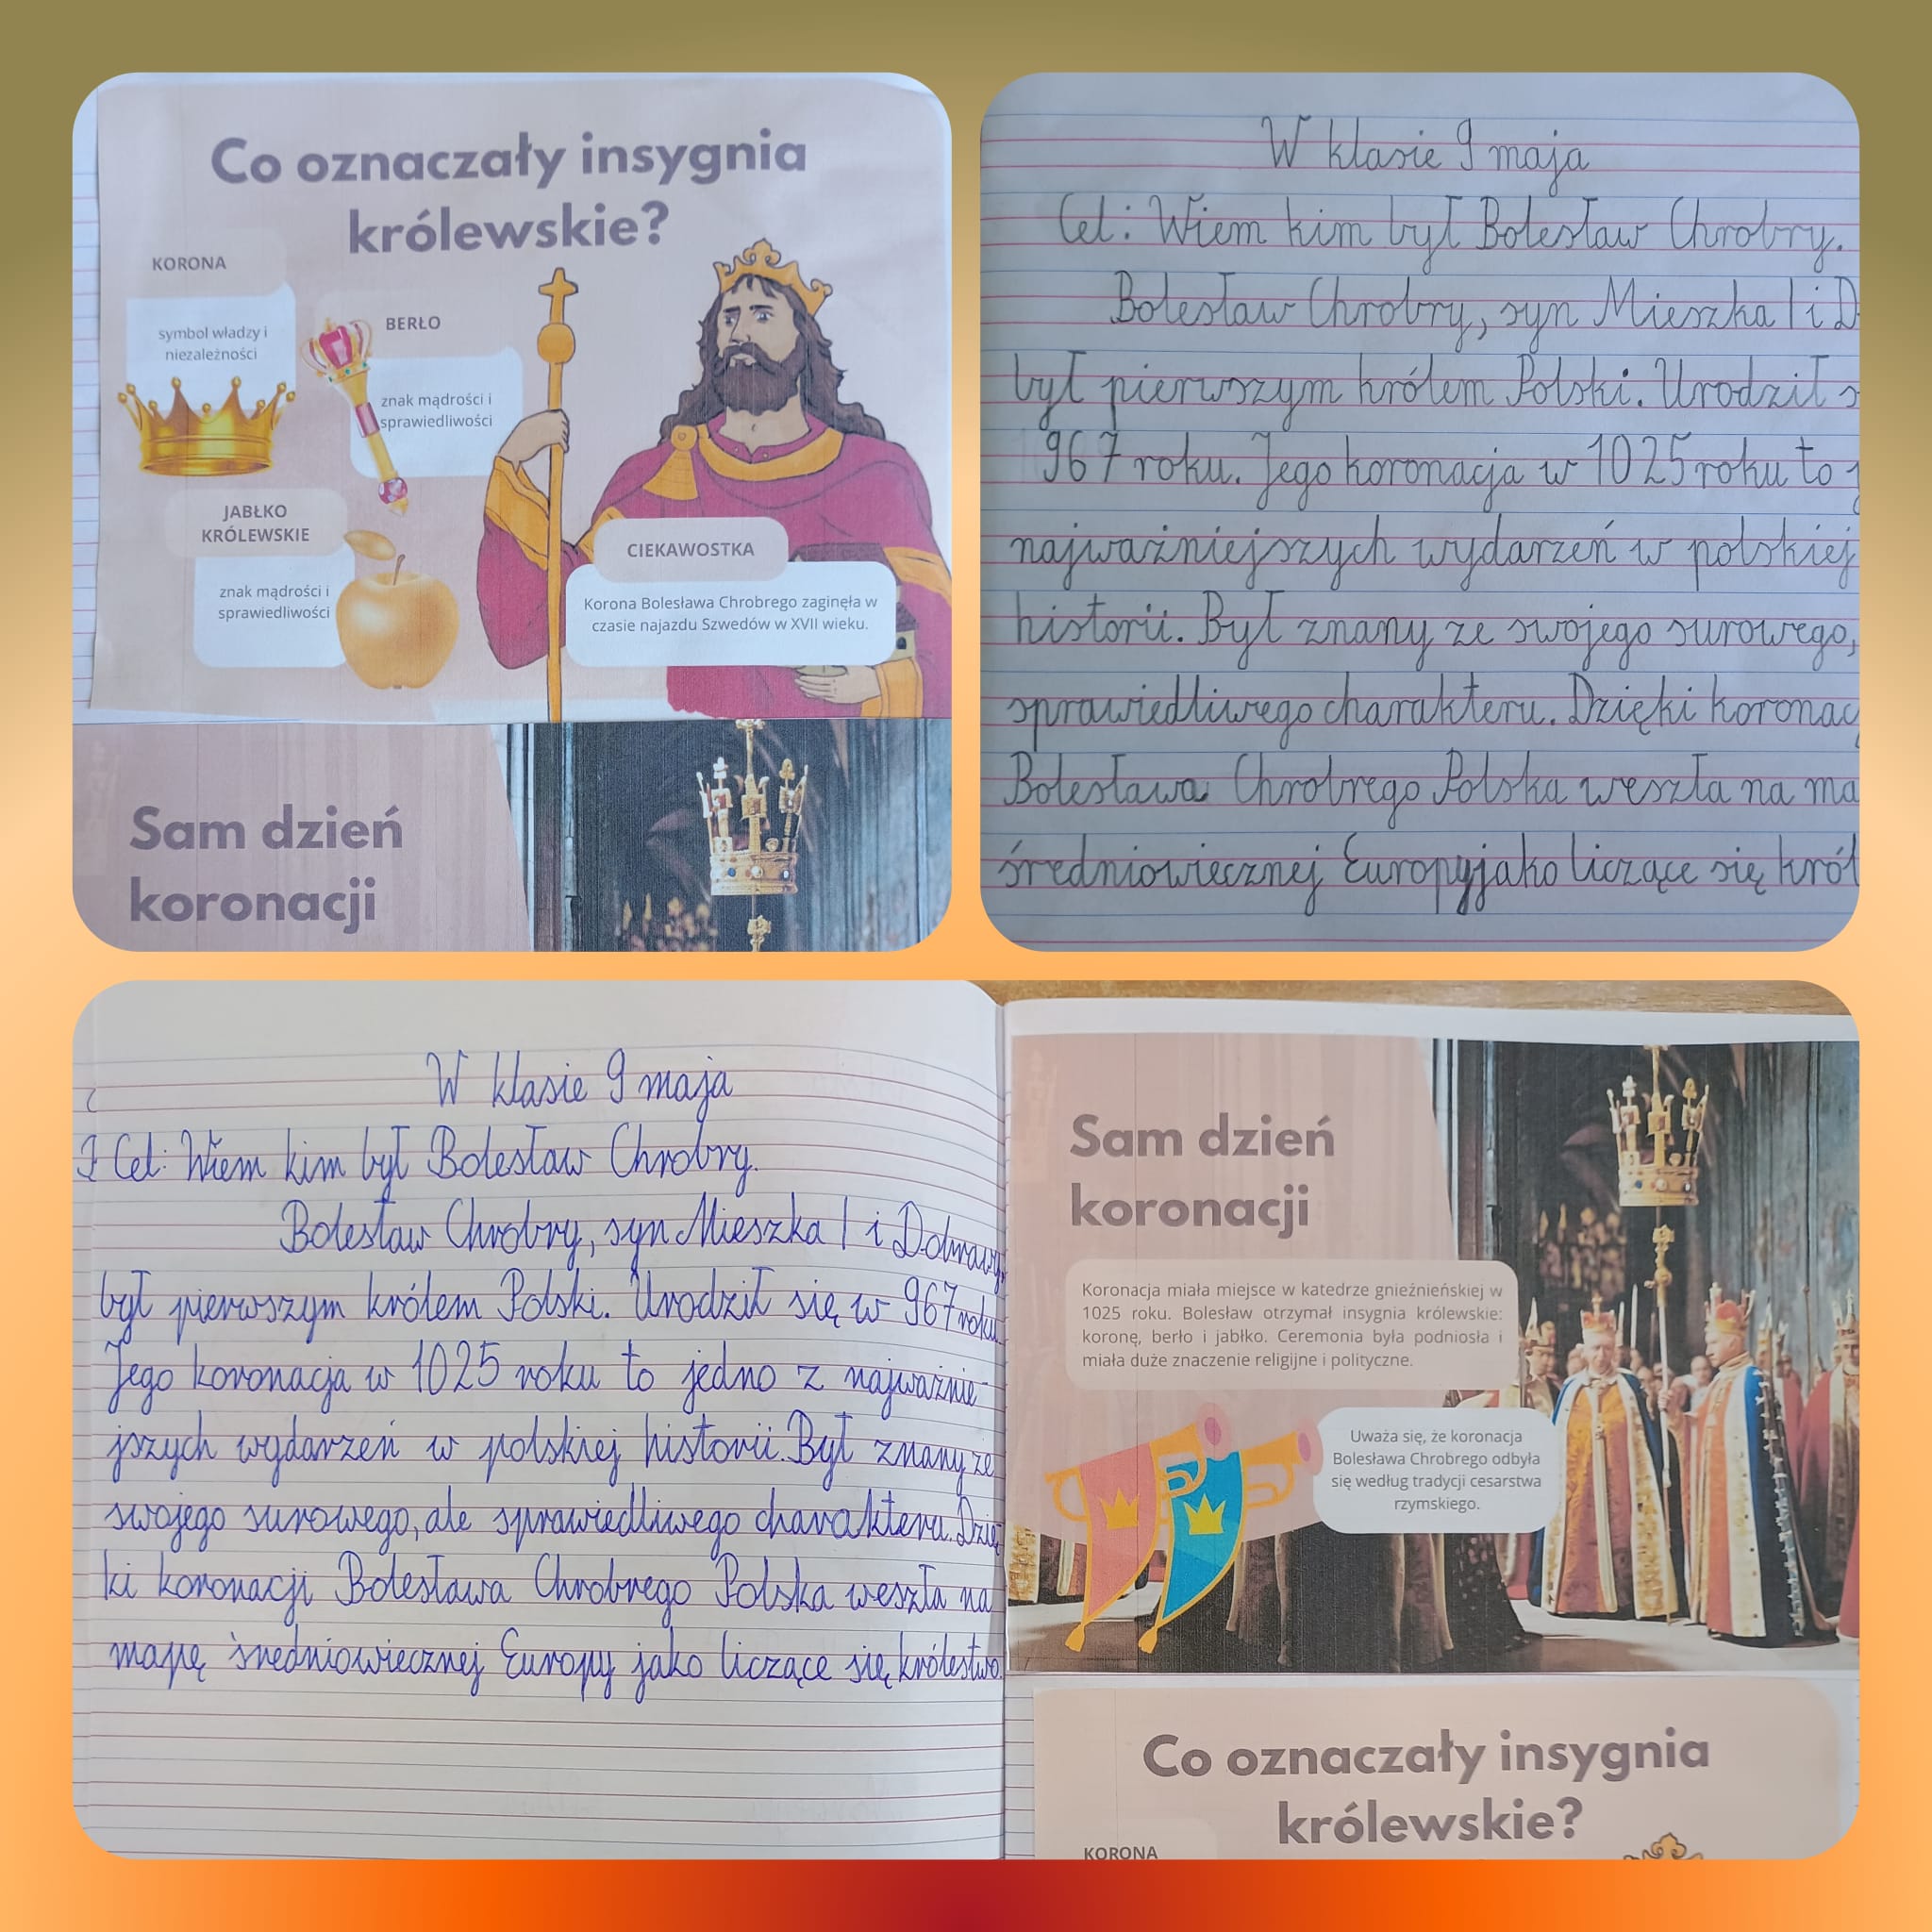 Co oznaczały insygnia
królewskie?
KORONA
symbol władzy i
niezależności
BERŁO
znak mądrości i
sprawiedliwości
JABŁKO
KRÓLEWSKIE
znak mądrości i
sprawiedliwości
CIEKAWOSTKA
Korona Bolesława Chrobrego zaginęła w
czasie najazdu Szwedów w XVII wieku.
Sam dzień
koronacji
W klasie 9 maja
Cel: Wiem kim był Bolesław Chrobry.
Bolesław Chrobry, syn Mieszka I i D
był pierwszym królem Polski. Urodził s
967 roku. Jego koronacja w 1025 roku to
najważniejszych wydarzeń w polskiej
historii. Był znany ze swojego surowego,
sprawiedliwego charakteru. Dzięki koronac
Bolesława Chrobrego Polska weszła na ma
średniowiecznej Europy jako liczące się król
W klasie 9 maja
Cel: Wiem kim był Bolesław Chrobry.
Bolesław Chrobry, syn Mieszka I i Dobrawy,
był pierwszym królem Polski. Urodził się w 967 roku.
Jego koronacja w 1025 roku to jedno z najważnie-
jszych wydarzeń w polskiej historii. Był znany ze
swojego surowego, ale sprawiedliwego charakteru. Dzię
ki koronacji Bolesława Chrobrego Polska weszła na
mapę średniowiecznej Europy jako liczące się królestwo.
Sam dzień
koronacji
Koronacja miała miejsce w katedrze gnieźnieńskiej w
1025 roku. Bolesław otrzymał insygnia królewskie:
koronę, berło i jabłko. Ceremonia była podniosła i
miała duże znaczenie religijne i polityczne.
Uważa się, że koronacja
Bolesława Chrobrego odbyła
się według tradycji cesarstwa
rzymskiego.
Co oznaczały insygnia
królewskie?
KORONA